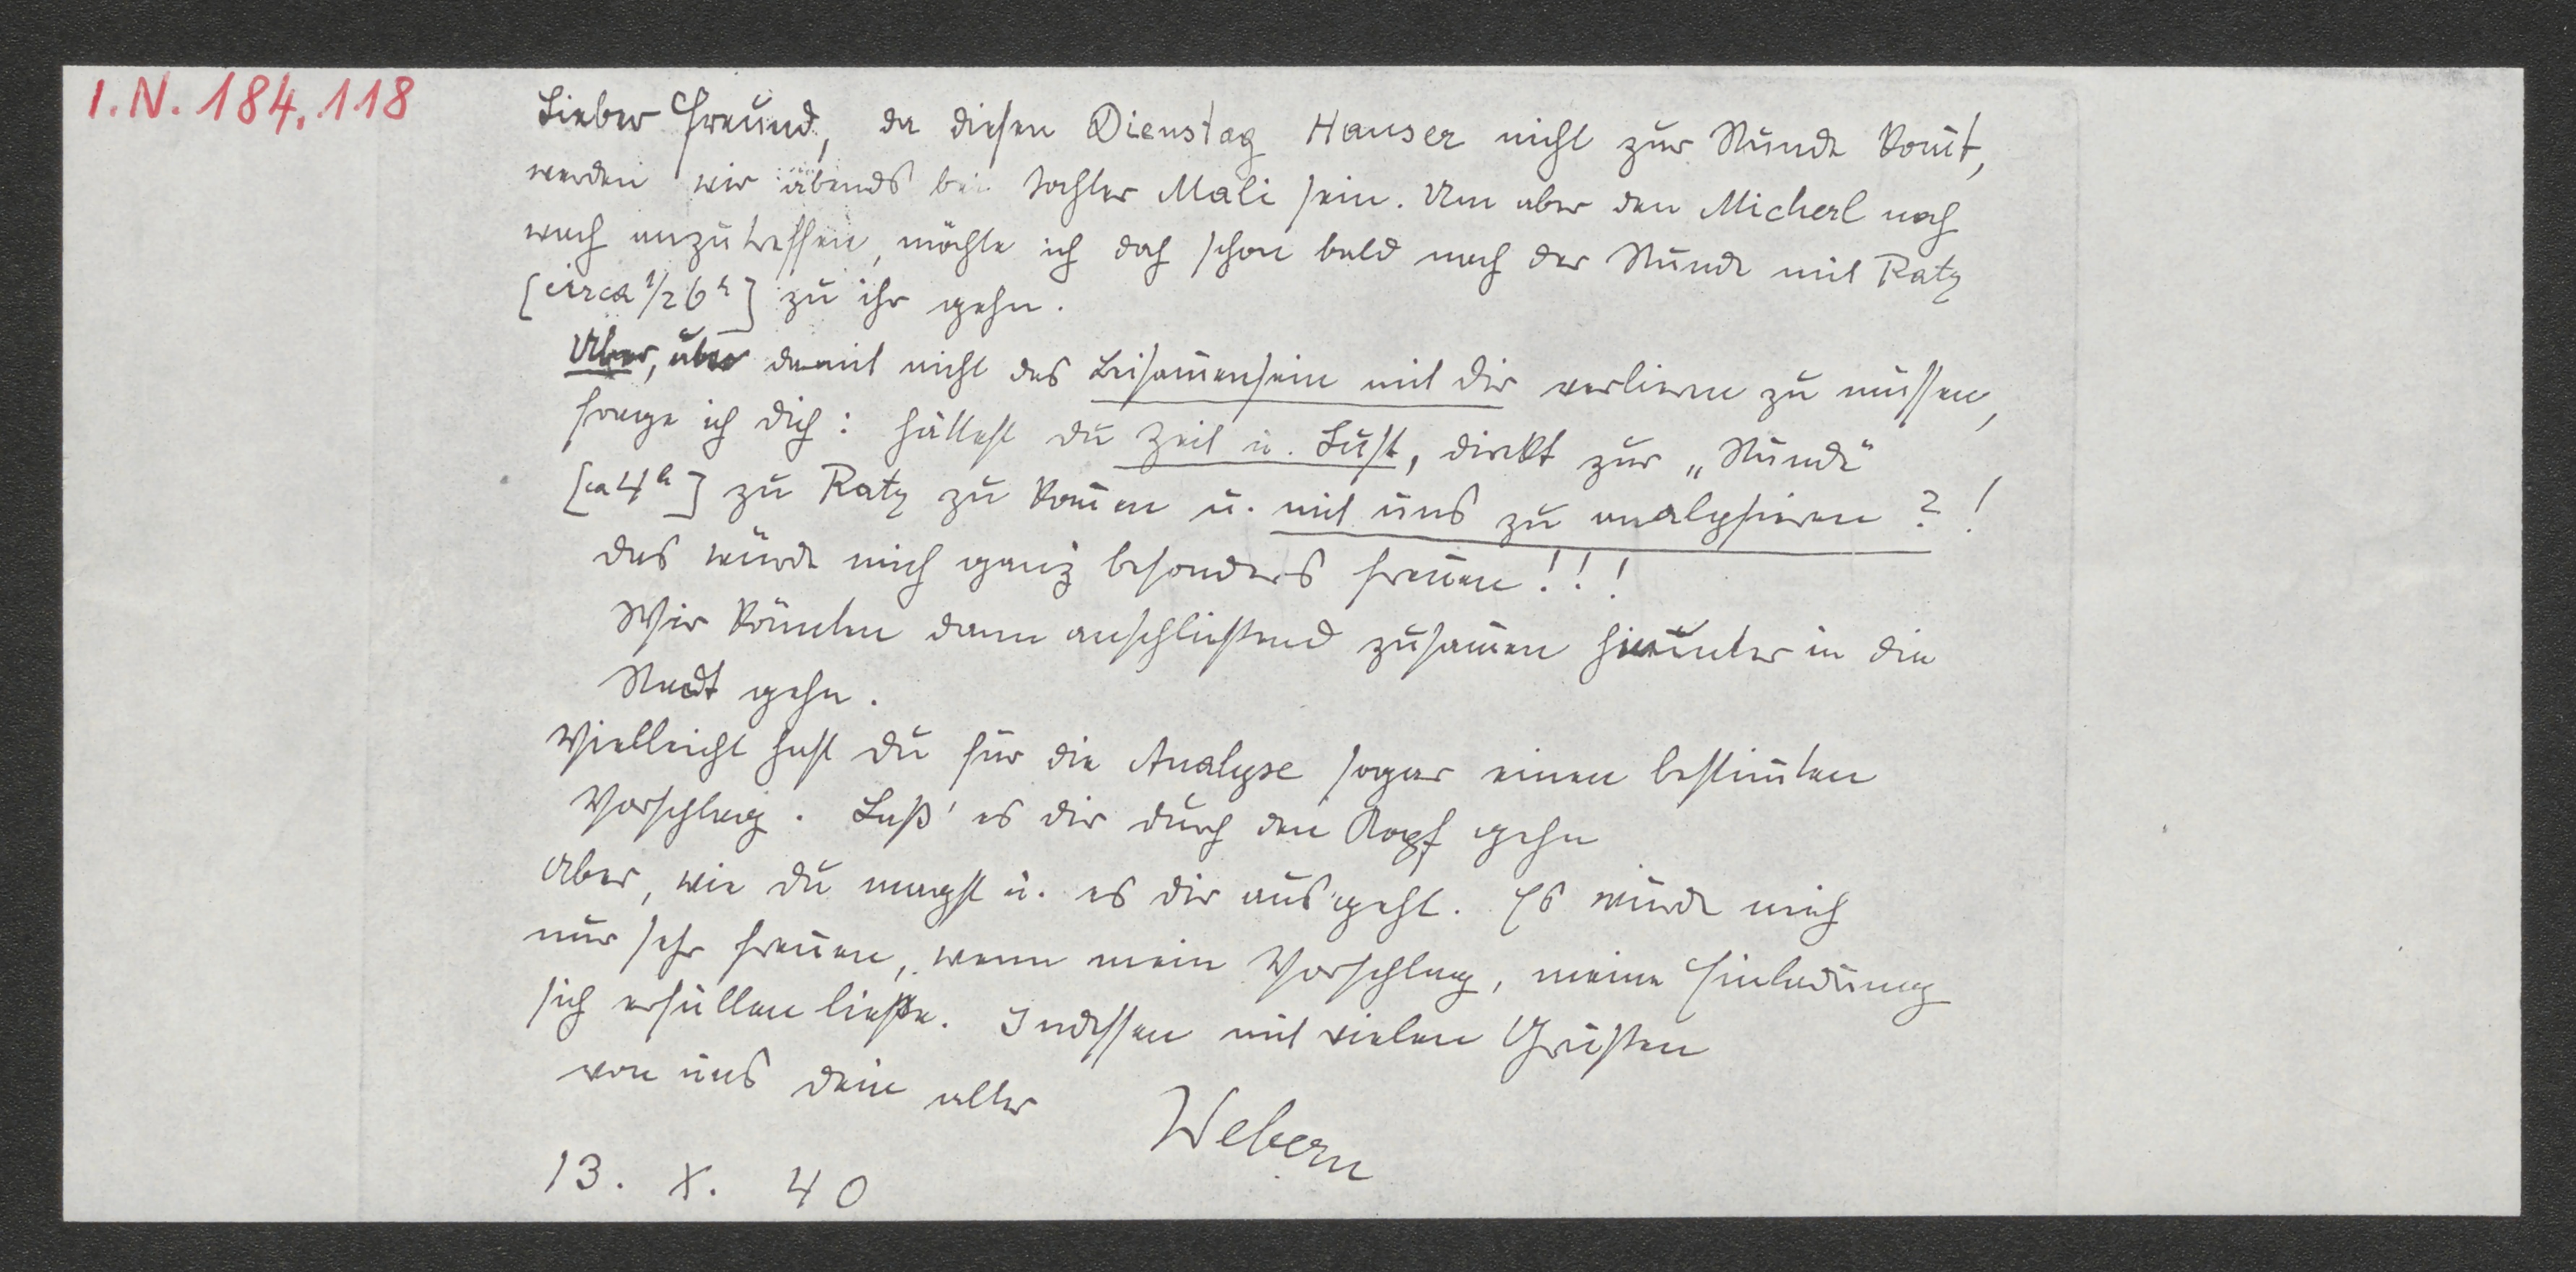 I.N. 184.118
Lieber Freund, da diesen Dienstag Hauser nicht zur Stunde kom̅t,
werden wir abends bei Tochter Mali sein. Um aber den Micherl noch
wach anzutreffen, möchte ich doch schon bald nach der Stunde mit Ratz
[circa ½6ʰ] zu ihr gehn.
Aber, aber damit nicht das Beisam̅ensein mit dir verlieren zu müssen,
frage ich dich: hättest du Zeit u. Lust, direkt zur „Stunde"
[ca 4ʰ] zu Ratz zu kom̅en u. mit uns zu analysieren?!
das würde mich ganz besonders freuen!!!
Wir kön̅ten dann anschließend zusam̅en hinunter in die
Stadt gehn.
Vielleicht hast du für die Analyse sogar einen bestim̅ten
Vorschlag. Laß' es dir durch den Kopf gehn
Aber, wie du magst u. es dir ausgeht. Es würde mich
nur sehr freuen, wenn mein Vorschlag, meine Einladung
sich erfüllen ließe. Indessen mit vielen Grüßen
von uns dein alter
Webern
13. X. 40